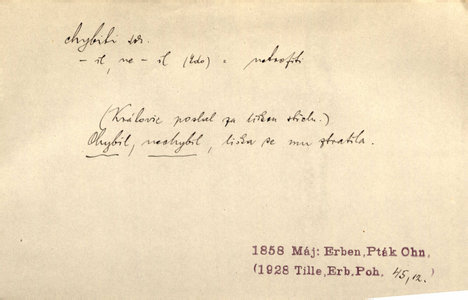 chybiti dok.
– il, ne – il (kdo) = netrefiti
(Králevic poslal za liškou střelu.)
Chybil, nechybil, liška se mu ztratila.
1858 Máj: Erben, Pták Ohn,
(1928 Tille, Erb. Poh. 45, 12.)